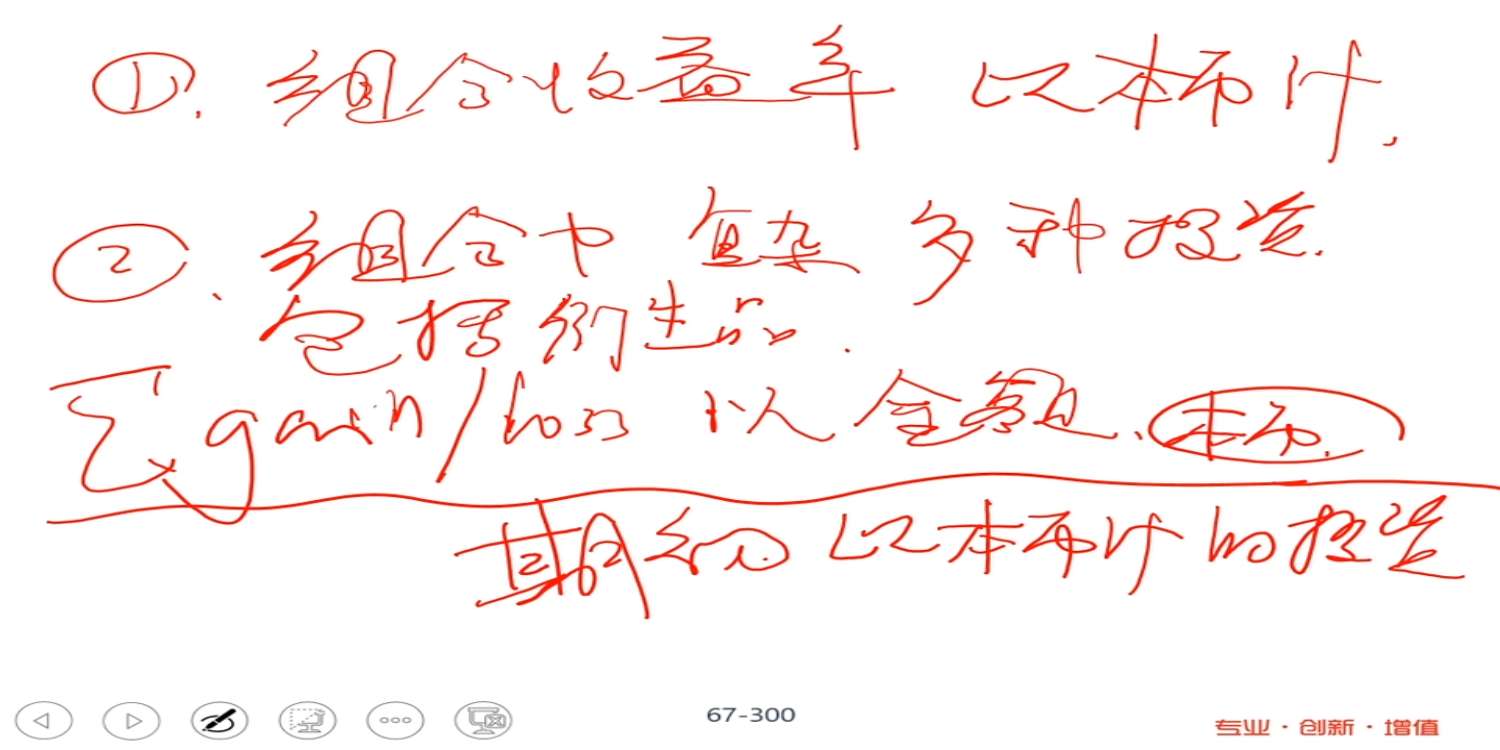 ①. 组合收益率 以本币计.
②. 组合中 复杂 多种投资.
包括衍生品.
Σ gain/loss 以金额. 本币.
期初 以本币计的投资
67-300
专业·创新·增值